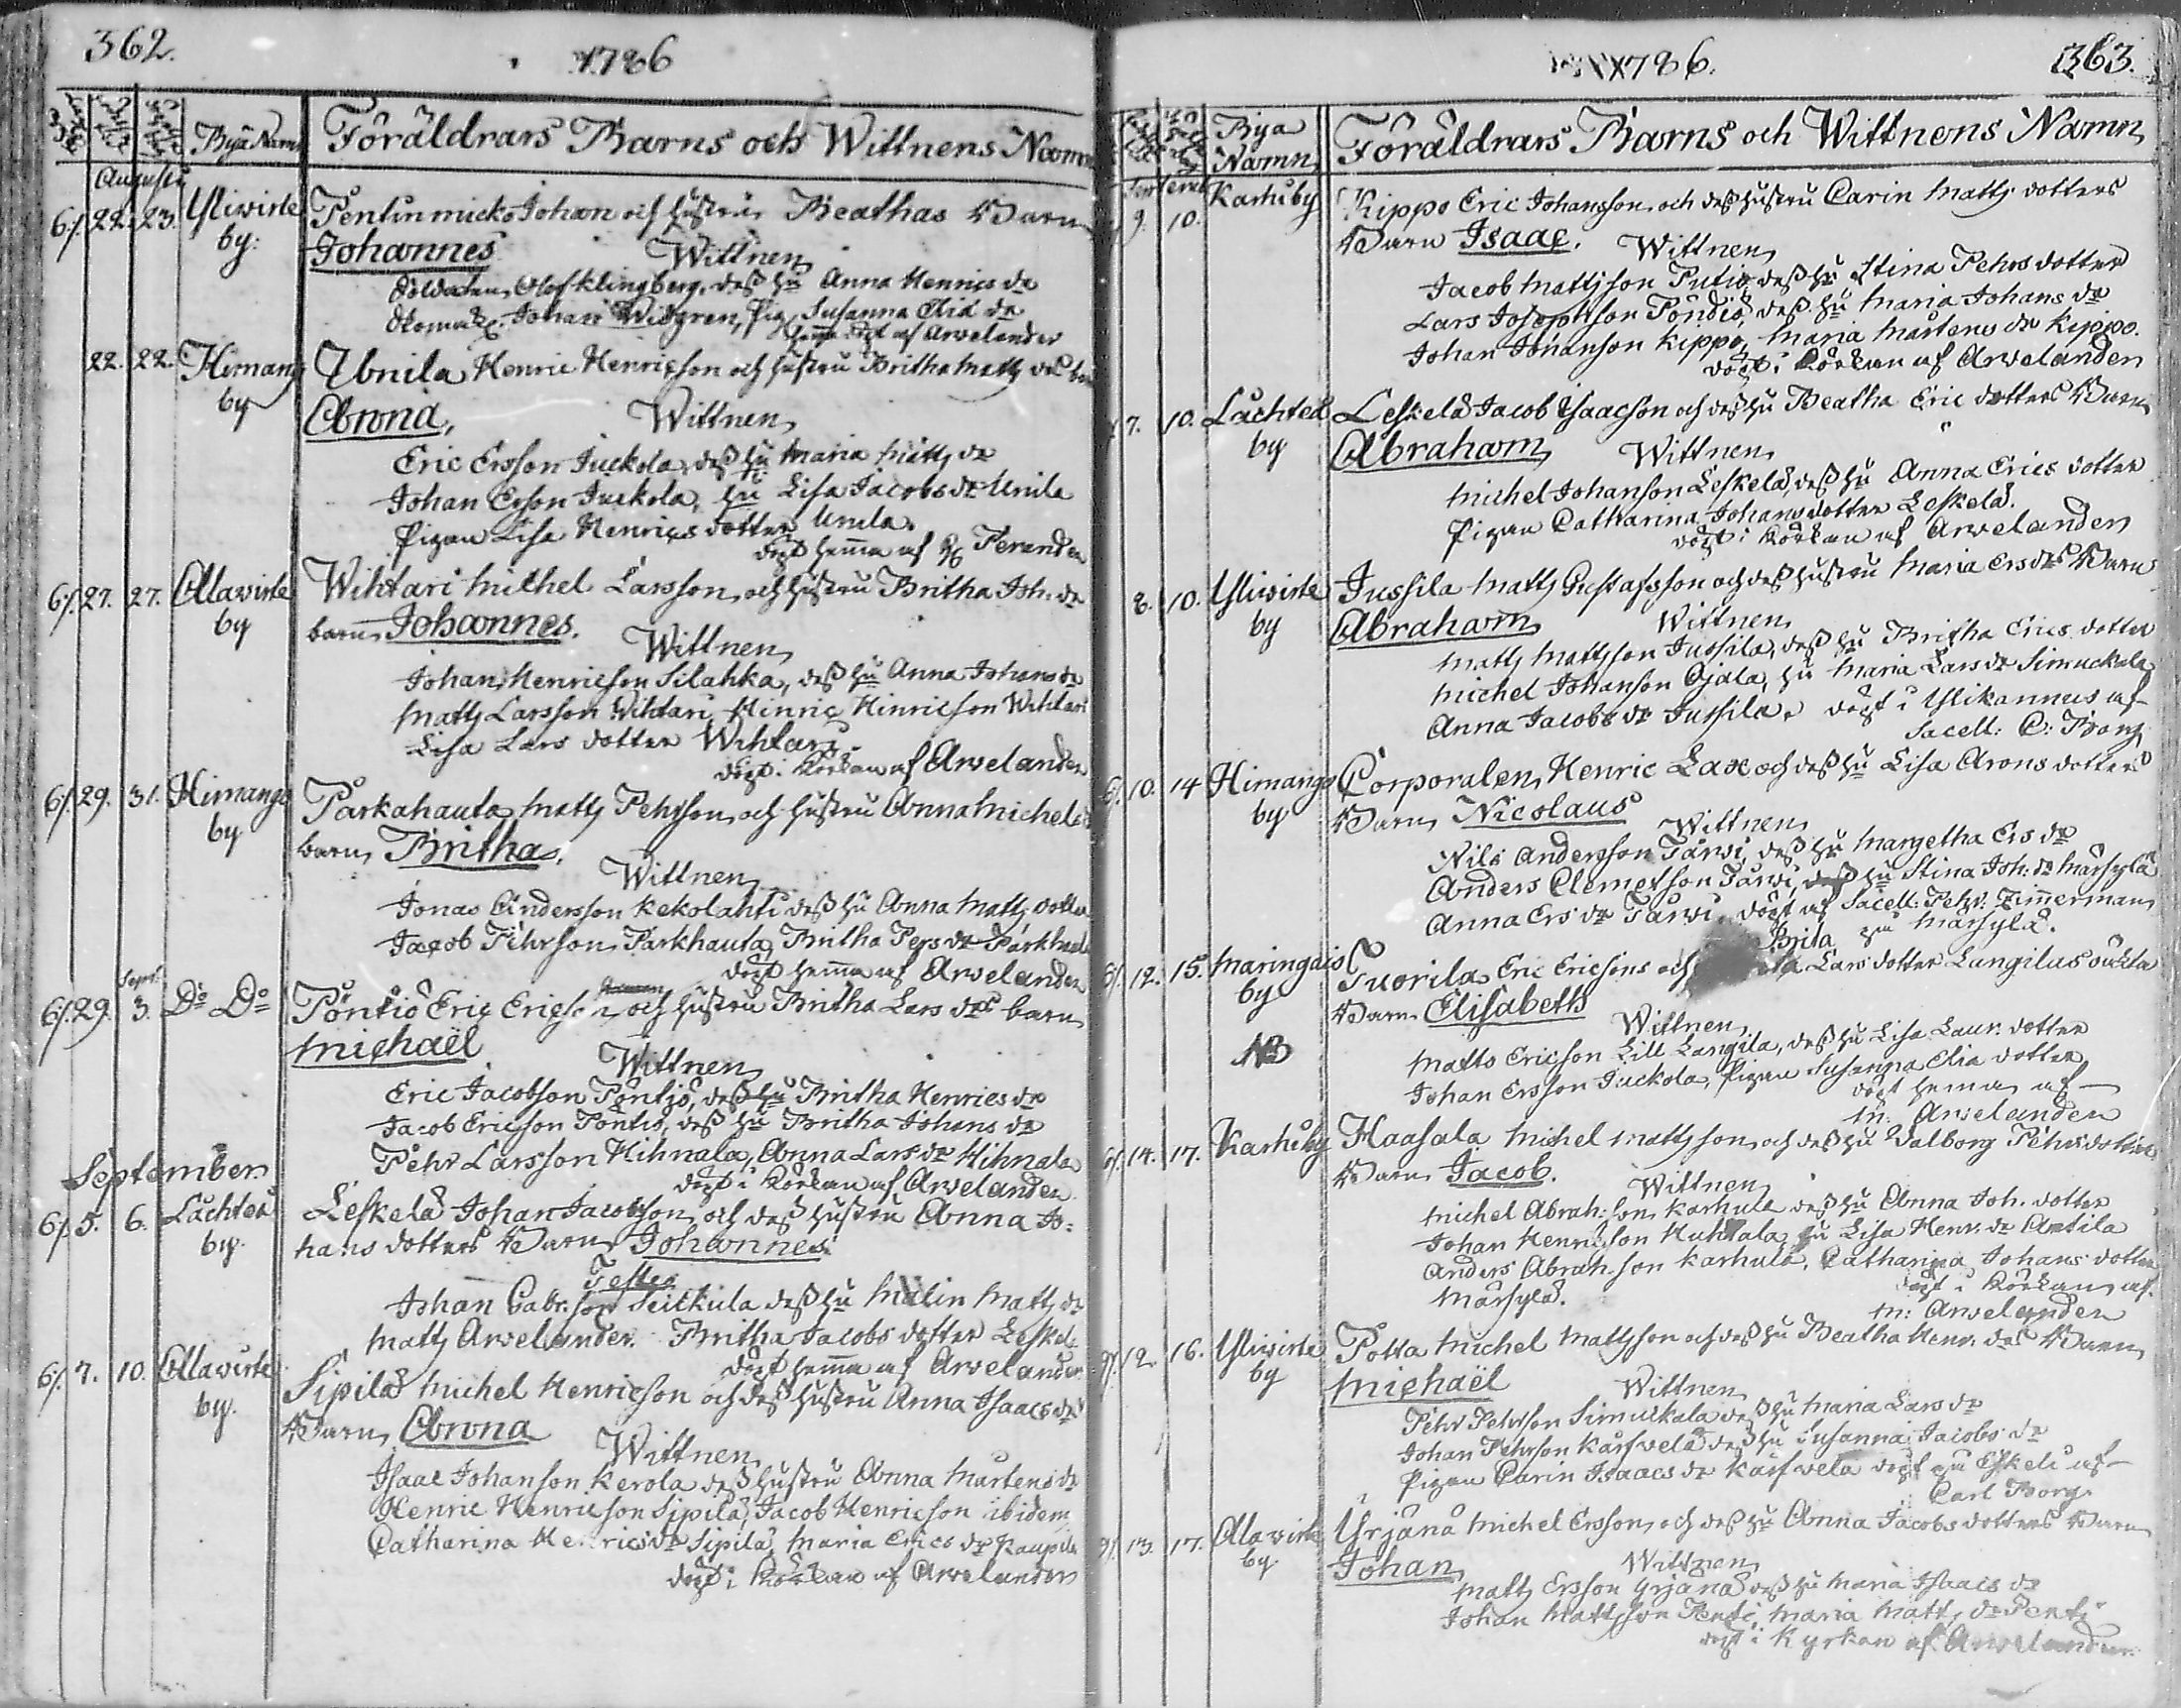 362.
1786
Byä Namn
Föräldrars Barns och Wittnens Namn
Augusti
6/. 22. 23. Yliwirte Pentinmicko Johan och hustru Beathas Barn
by: Johannes Wittnen
Soldaten Olof Klingberg, deß hu Anna Henrics dr
Johan Widgren, Pig. Susanna Elia dr
hema af Arwelander
22. 22. Himang Ybnila Henric Henricson och hustru Britha Matts
by Anna, Wittnen
Eric Ersson Juckola, deß hu Maria Matts dr
Johan Ersson Juckola, hu Lisa Jacobs dr Unila
Pigan Lisa Henrics dotter Unila.
döpt hema af Perander
6/. 27. 27. Allawirte Wihtari Michel Larsson, och hustru Britha Joh. dr
by barn Johannes.
Wittnen
Johan Henricson Silahka, deß hu Anna Johans dr
Matts Larsson Wihtari, Hinric Hinricson Wihtari
Lisa Lars dotter Wihtari.
döpt i Körkan af Arwelander
6/. 29. 31. Himango Parkahauta Matts Pehrson och hustru Anna Michels
by barn Britha.
Wittnen
Jonas Andersson Kekolahti deß hu Anna Matts dotter
Jacob Pehrson Parkhauta, Britha Pers dr Parkhauta
döpt hema af Arwelander
Sept.
6/. 29. 3. Do Do Pöntiö Eric Ericson och hustru Britha Lars drs barn
Michaël
Wittnen
Eric Jacobson Pöntiö, deß hu Britha Henrics dr
Jacob Ericson Pöntiö, deß hu Britha Johans dr
Pehr Larsson Hihnala, Anna Lars dr Hihnala
döpt i Körkan af Arwelander
September
6/. 5. 6. Lachted Leskelä Johan Jacobson och deß hustru Anna Jo=
by. hans dotters Barn Johannes.
Testes
Johan Gabr. son Seitkula deß hu Malin Matts dr
Matts Arwelander. Britha Jacobs dotter Leskelä
döpt hema af Arwelander
6/. 7. 10. Allawirte Sipilä Michel Henricson och deß hustru Anna Isaacs drs
by. Barn Anna
Wittnen
Isaac Johanson Kerola deß hustru Anna Mårtens dr
Henric Henricson Sipilä, Jacob Henricson ibidem
Catharina Henrics dr Sipilä, Maria Erics dr Kaupila
döpt i Körkan af Arwelander
1786.
363.
Bya Namn
Föräldrars Barns och Wittnens Namn
Karhuby Kippo Eric Johansson och deß hustru Carin Matts dotters
9. 10. Barn Isaac. Wittnen
Jacob Mattsson deß hu Stina Pehrs dotter
Lars Josephson Pöndiö, deß hu Maria Johans dr
Johan Johanson Kippo, Maria Mårtens dr Kippo.
döpt i Körkan af Arwelander
7. 10. Lachted Leskelä Jacob Isaacson och deß hu Beatha Eric dotters Barn
by Abraham Wittnen
Michel Johanson Leskelä, deß hu Anna Erics dotter
Pigan Catharina Johans dotter Leskelä.
döpt i Körkan af Arwelander
8. 10. Yliwirte Jussila Matts Gustafsson och deß hustru Maria Ers drs Barn
by Abraham Wittnen
Matts Mattsson Jussila, deß hu Britha Erics dotter
Michel Johanson Ojala, hu Maria Lars dr Simuckala
Anna Jacobs dr Jussila, döpt i Ylikannus af
Sacell: C: Borg
6/. 10. 14 Himango Corporalen Henric Lax och deß hu Lisa Arons dotters
by Barn Nicolaus
Wittnen
Nils Andersson Tårwi, deß hu Margetha Ers dr
Anders Clemetson Tårwi, hu Stina Joh: dr Märsylä
Anna Ers dr Tårwi, döpt af Sacell: Pehr: Zimmerman
Brita på Märsylä.
6/. 12. 15. Maringais Tuorila Eric Ericsons och Lars dotter Langilas oächta
by Barn Elisabeth
NB Wittnen
Matts Ericson Lill Langila, deß hu Lisa Laur. dotter
Johan Ersson Juckola, Pigan Susanna Elia dotter
döpt hema af
M: Arwelander
6/. 14. 17. Karhuby Haasala Michel Mattsson och deß hu Walborg Pehrs dotters
Barn Jacob.
Wittnen
Michel Abrah: son Karhula deß hu Anna Joh. dotter
Johan Henricson Huhtala, hu Lisa Henr. dr Antila
Anders Abrah. son Karhula, Catharina Johans dotter
Märsylä. döpt i Körkan af
M: Arwelander
9/. 12. 16. Yliwirte Potta Michel Mattsson och deß hu Beatha Henr. drs Barn
by Michaël
Wittnen
Pehr Pehrson Simuckala deß hu Maria Lars dr
Johan Pehrson Kärfwelä deß hu Susanna Jacobs dr
Pigan Carin Isaacs dr Kärfwelä döpt på Eskeli af
Carl Borg
9/. 13. 17. Allawirte Yrjänä Michel Ersson och deß hu Anna Jacobs dotters Barn
by. Johan
Wittnen
Matts Ersson Yrjänä deß hu Maria Isaacs dr
Johan Mattsson Penti, Maria Matts dr Penti
döpt i Kyrkan af Arwelander.